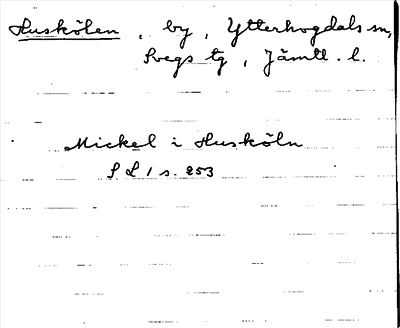 Huskölen, by, Ytterhogdals sn,
Svegs tg, Jämtl. l.
Mickel i Husköln
S L 1 s. 253